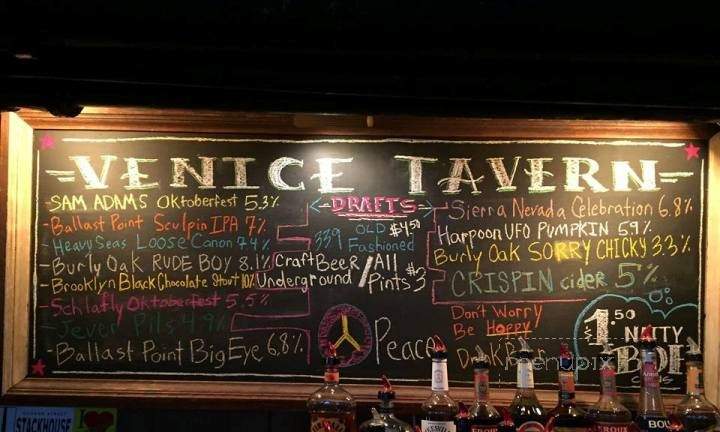 VENICE TAVERN
SAM ADAMS Oktoberfest 5.3%
Ballast Point Sculpin IPA 7%
Heavy Seas Loose Canon 7.4%
Burly Oak RUDE BOY 8.1%
Brooklyn Black Chocolate Stout 10%
Schlafly Oktoberfest 5.5%
Jever Pils 4.9%
Ballast Point Big Eye 6.8%
DRAFTS
OLD Fashioned $4.50
Craft Beer Underground
All Pints $3
Peace
Sierra Nevada Celebration 6.8%
Harpoon UFO PUMPKIN 5.9%
Burly Oak SORRY CHICKY 3.3%
CRISPIN cider 5%
Don't Worry
Be Hoppy
1.50 NATTY
BOH
menupix
STACKHOUSE